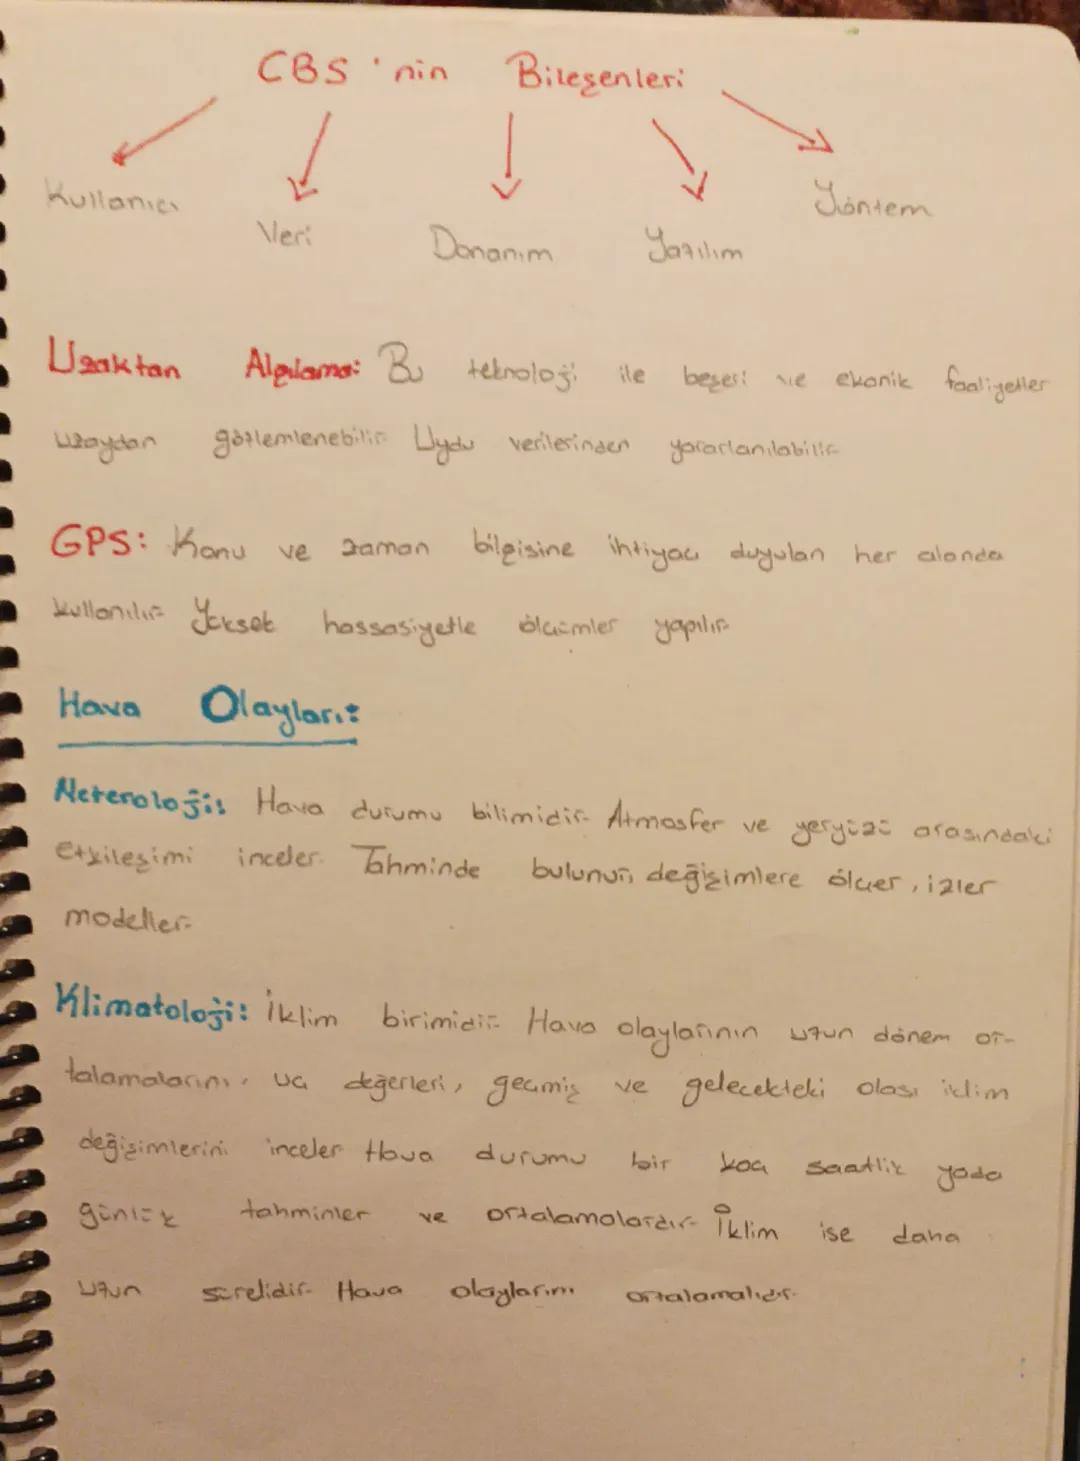 CBS 'nin Bileşenleri
Kullanıcı
Veri
Donanım
Yazılım
Yöntem
Uzaktan Algılama: Bu teknoloji ile beşeri ve ekonik faaliyetler
uzaydan gözlemlenebilir Uydu verilerinden yararlanılabilir
GPS: Konu ve zaman bilgisine ihtiyacı duyulan her alanda
kullanılır Yüksek hassasiyetle ölçümler yapılır
Hava Olayları:
Meteroloji: Hava durumu bilimidir. Atmosfer ve yeryüzü arasındaki
etkileşimi inceler. Tahminde bulunur, değişimlere ölçer, izler
modeller.
Klimatoloji: İklim birimidir. Hava olaylarının uzun dönem or-
talamalarını, uç değerleri, geçmiş ve gelecekteki olası iklim
değişimlerini inceler Hava durumu bir kaç saatlik yada
günlük tahminler ve ortalamalardır. İklim ise daha
uzun sürelidir. Hava olaylarını ortalamalıdır.